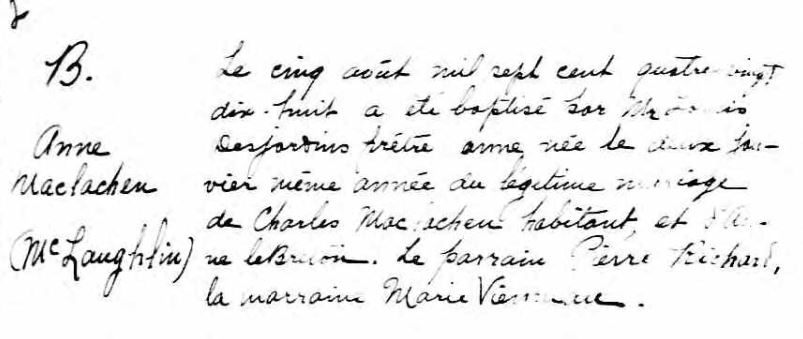 B.
Anne
Maclachen
(McLaughlin)
Le cinq août mil sept cent quatre-vingt
dix-huit a été baptisé par Mr Louis
Desjardins prêtre anne née le deux Jan-
vier même année du légitime mariage
de Charles Maclachen habitant, et d'An-
ne leBreton. Le parrain Pierre Richard,
la marraine Marie